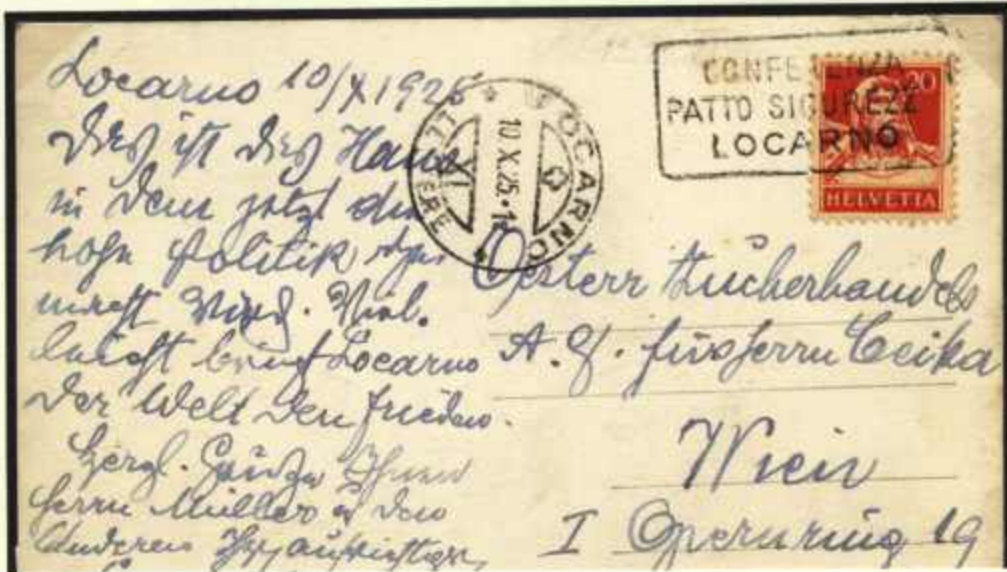 Locarno 10/X 1925
Dies ist das Haus
in dem jetzt die
hohe Politik
macht wird. Viel-
leicht bringt Locarno
der Welt den Frieden.
Herzl. Grüße Ihnen
Herrn Müller u den
Anderen
CONFERENZA
PATTO SICUREZZ
LOCARNO
20
HELVETIA
LOCARNO
10.X.25
Oesterr Zuckerhandels
A. G. für Herrn Ceika
Wien
I Opernring 19